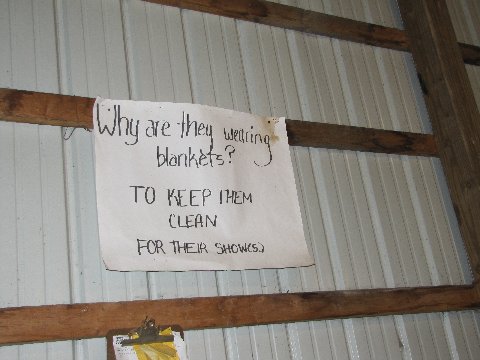 Why are they wearing
blankets?
TO KEEP THEM
CLEAN
FOR THEIR SHOW(S)